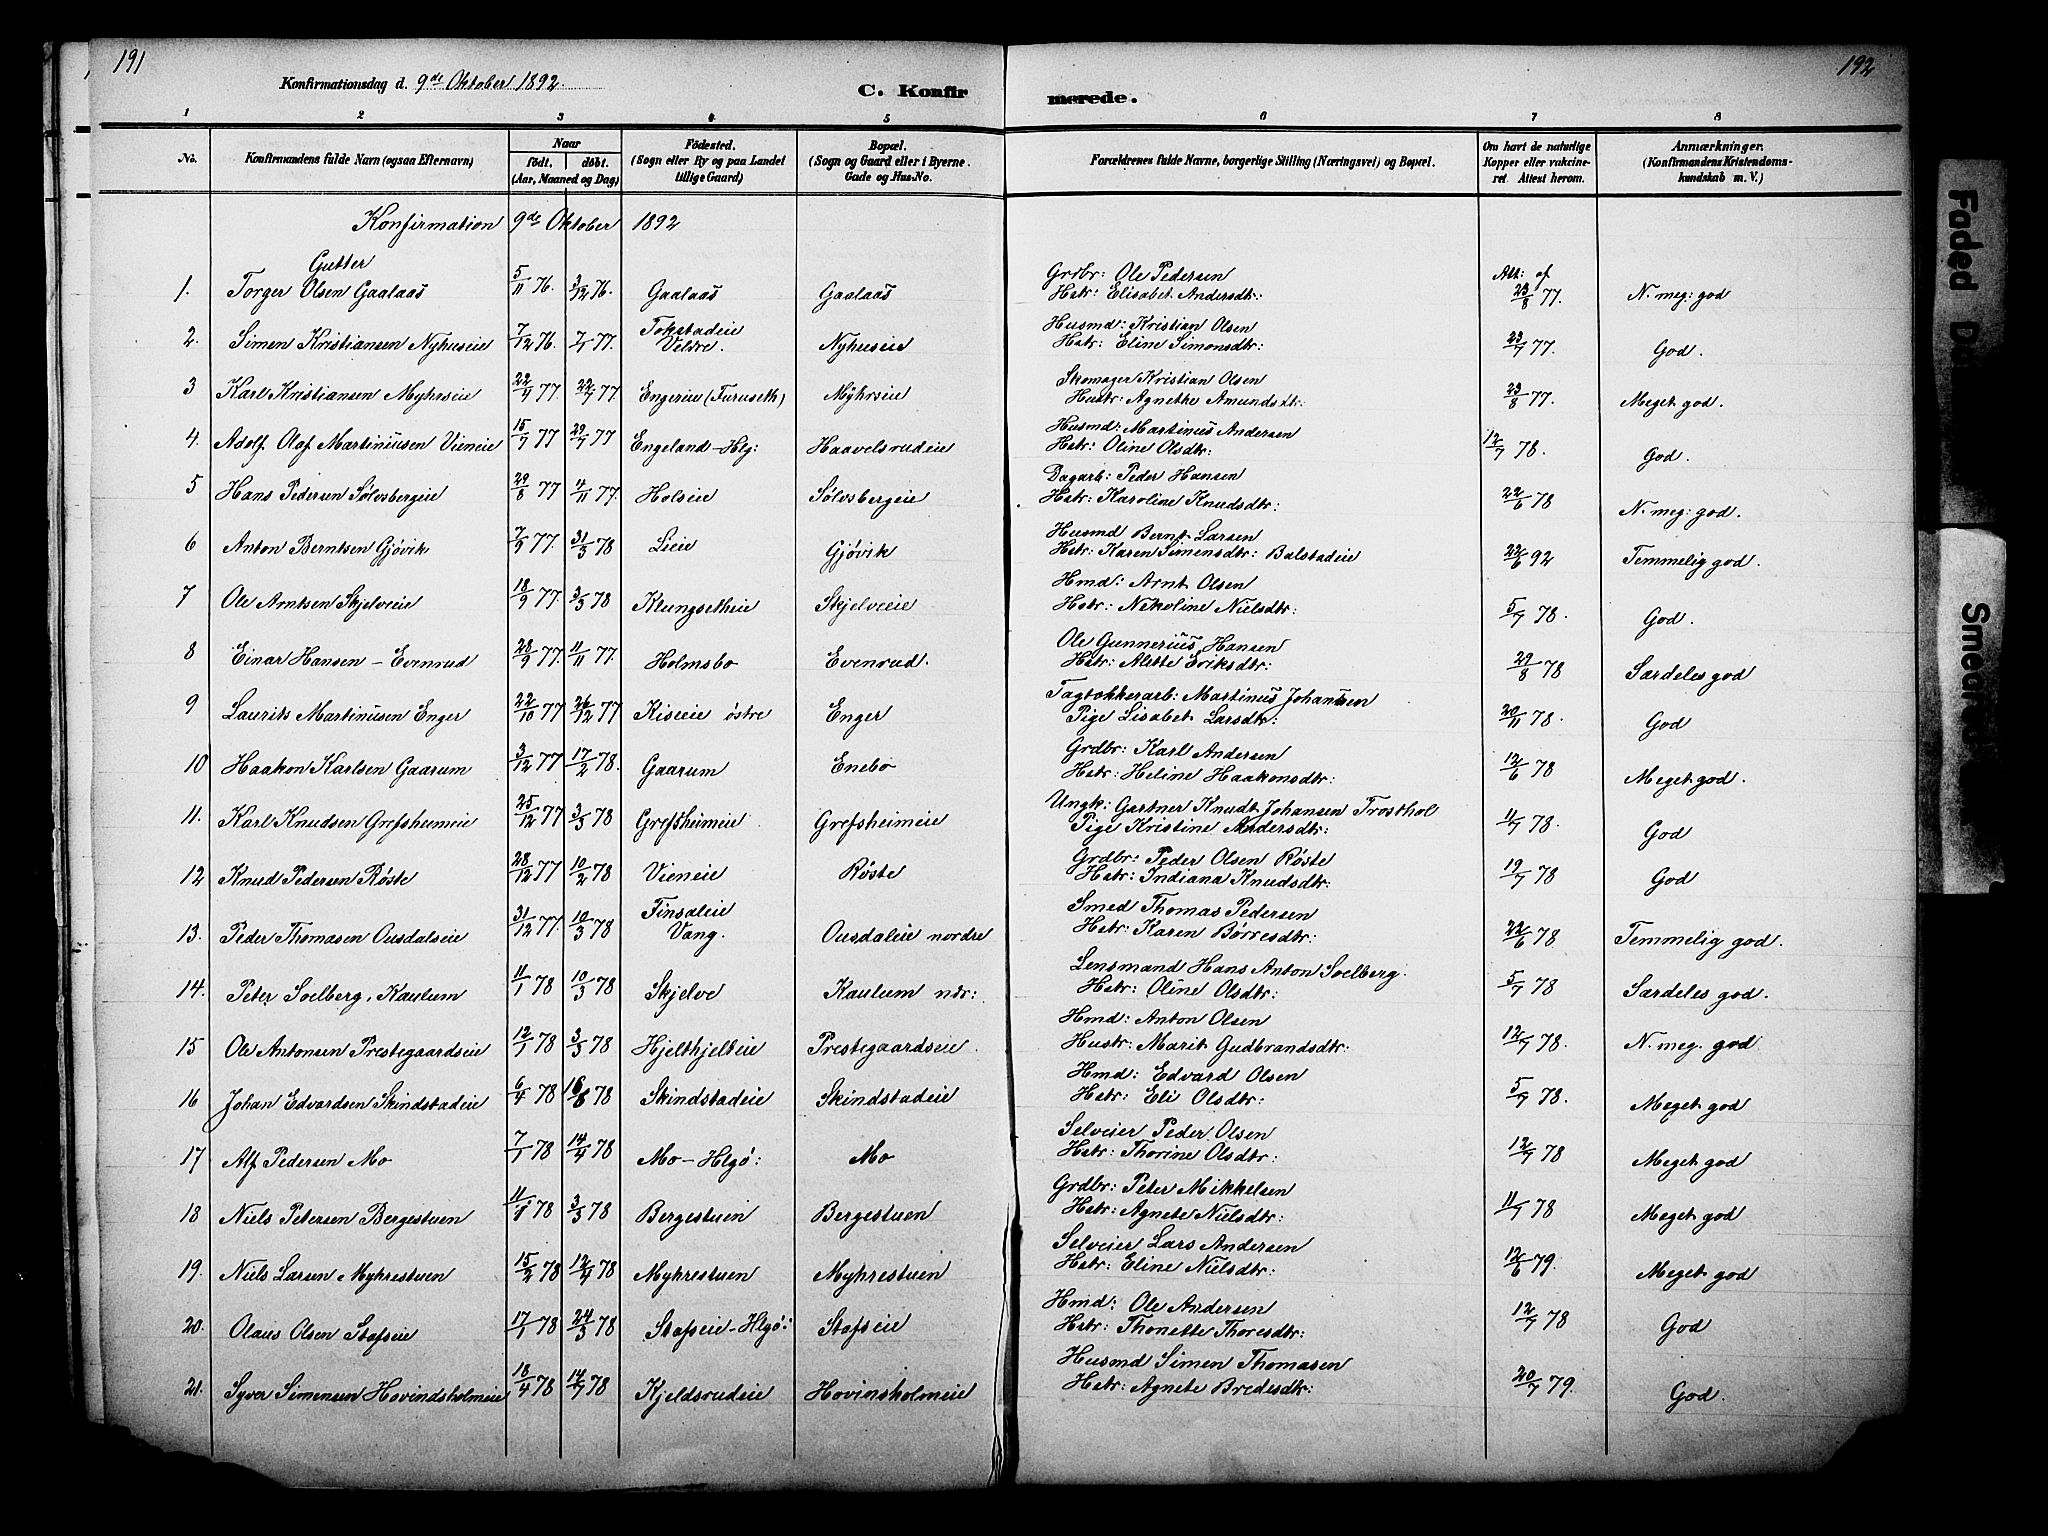 191
192
Konfirmationsdag d. 9de Oktober 1892.
C. Konfirmerede.
1 2 3 4 5 6 7 8
No. Konfirmandens fulde Navn (ogsaa Efternavn) Naar født. døbt. (Aar, Maaned og Dag) Fødested. (Sogn eller By og paa Landet tillige Gaard) Bopæl. (Sogn og Gaard eller i Byerne Gade og Hus-No. Forældrenes fulde Navne, borgerlige Stilling (Næringsvei) og Bopæl. Om havt de naturlige Kopper eller vakcineret Attest herom. Anmærkninger. (Konfirmandens Kristendomskundskab m. V.)
Konfirmation 9de Oktober 1892
Gutter
1. Torger Olsen Gaalaas 5/11 76. 3/12 76. Gaalaas Gaalaas Grdbr: Ole Pedersen Hstr: Elisabet Andersdtr: Att: af 23/8 77. N. meg: god
2. Simen Kristiansen Nyhuseie 7/12 76. 7/1 77. Tokstadeie Veldre. Nyhuseie Husmd: Kristian Olsen Hstr: Eline Simonsdtr: 23/7 77. God.
3 Karl Kristiansen Myhrseie 22/4 77. 22/7 77 Engereie (Furuseth) Myhrseie Skomager Kristian Olsen Hustr: Agnethe Amundsdtr. 23/8 77. Meget god.
4. Adolf Olaf Martiniusen Vieneie 15/7 77 29/7 77 Engeland-Hlg: Haavelsrudeie Husmd: Martinus Andersen Hstr: Oline Olsdtr: 12/7 78. God.
5 Hans Pedersen Sølvsbergeie 29/8 77 4/11 77. Holseie Sølvsbergeie Dagarb: Peder Hansen Hstr: Karoline Knudsdtr: 22/6 78 N. meg: god.
6 Anton Berntsen Gjøvik 7/9 77. 31/3 78 Lieie Gjøvik Husmd Bernt Larsen Hstr: Karen Simensdtr: Balstadeie 22/6 92 Temmelig god.
7 Ole Arntsen Skjelveie 18/9 77. 3/3 78 Klungsetheie Skjelveie Hmd: Arnt Olsen Hstr: Nikoline Nielsdtr: 5/7 78. God.
8 Einar Hansen - Evenrud 28/9 77. 11/11 77. Holmsbo Evenrud. Ole Gunnerius Hansen Hstr: Alette Eriksdtr: 29/8 78 Særdeles god
9 Laurits Martinusen Enger 22/10 77 26/12 77 Kiseie østre Enger Tagtækkerarb: Martinus Johansen Pige Lisabet Larsdtr: 20/11 78. God
10 Haakon Karlsen Gaarum 3/12 77 17/2 78. Gaarum Enebo Grdbr: Karl Andersen Hstr: Heline Haakonsdtr: 12/6 78 Meget god.
11. Karl Knudsen Grefsheimeie 25/12 77 3/3 78 Grefsheimeie Grefsheimeie Ungk: Gartner Knudt Johansen Trosthol Pige Kristine Andersdtr: 4/7 78. God
12 Knud Pedersen Røste 28/12 77 10/2 78 Vieneie Røste Grdbr: Peder Olsen Røste Hstr: Indiana Knudsdtr: 19/7 78 God
13. Peder Thomasen Ousdalseie 31/12 77. 10/3 78 Finsaleie Vang. Ousdaleie nordre Smed Thomas Pedersen Hstr: Karen Børresdtr: 22/6 78 Temmelig god.
14. Peter Soelberg, Kaulum 11/1 78 10/3 78 Skjelve Kaulum ndr: Lensmand Hans Anton Soelberg. Hstr: Oline Olsdtr: 5/7 78 Særdeles god.
15 Ole Antonsen Prestegaardseie 12/1 78 3/3 78 Hjelthjelteie Prestegaardseie. Hmd: Anton Olsen Hustr: Marit Gudbrandsdtr: 12/7 78. N. meg. god
16 Johan Edvardsen Skindstadeie 6/4 78 16/6 78 Skindstadeie Skindstadeie Hmd: Edvard Olsen Hstr: Eli Olsdtr: 5/7 78. Meget god
17 Alf Pedersen Mo 7/1 78 14/4 78 Mo - Hlgø: Mo Selveier Peder Olsen Hstr: Thorine Olsdtr: 12/7 78 Meget god
18 Niels Petersen Bergestuen 11/1 78 3/3 78 Bergestuen Bergestuen Grdbr: Peter Mikkelsen Hstr: Agnete Nielsdtr: 11/7 78 Meget god
19. Niels Larsen Myhrestuen 15/2 78 12/4 78 Myhrestuen Myhrestuen Selveier Lars Andersen Hstr: Eline Nielsdtr: 12/6 79. Meget god
20. Olaus Olsen Stafseie 17/1 78 24/3 78 Stafseie-Hlgø: Stafseie Hmd: Ole Andersen Hstr: Thonette Thoresdtr: 12/7 78 God
21. Syver Simensen Hovindsholmeie 18/4 78 14/7 78 Kjeldsrudeie Hovinsholmeie Husmd Simen Thomasen Hstr: Agnete Bredesdtr: 20/7 79. God.
Faded D
Smeared